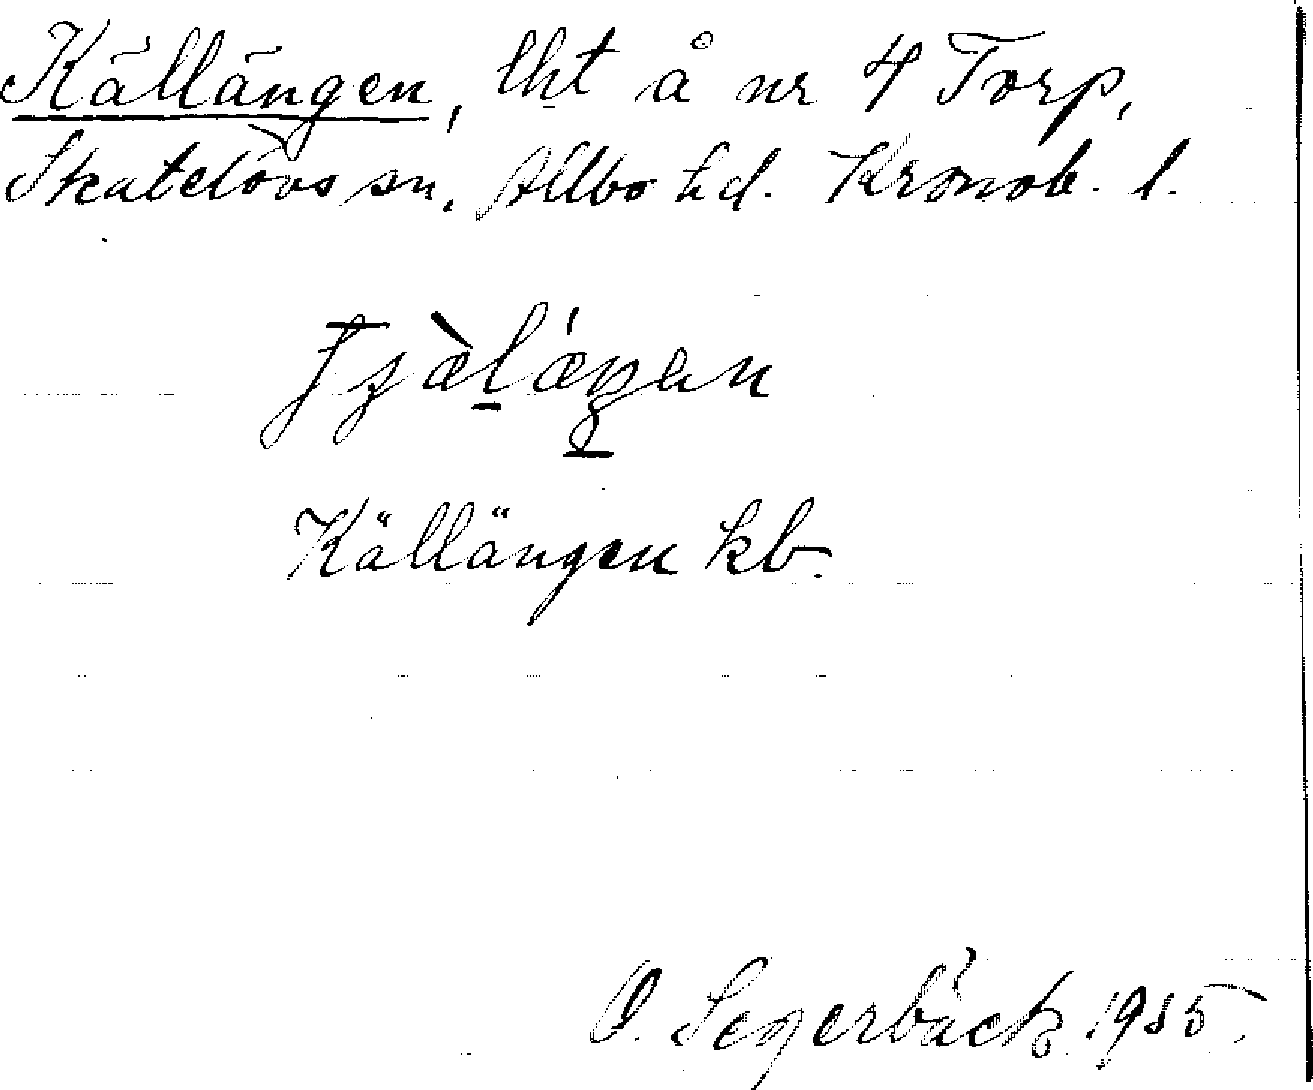 Källängen, lht å nr 4 Torp,
Skatelövs sn. Allbo hd. Kronob. l.
Källängen kb.
O. Segerbäck 1915.